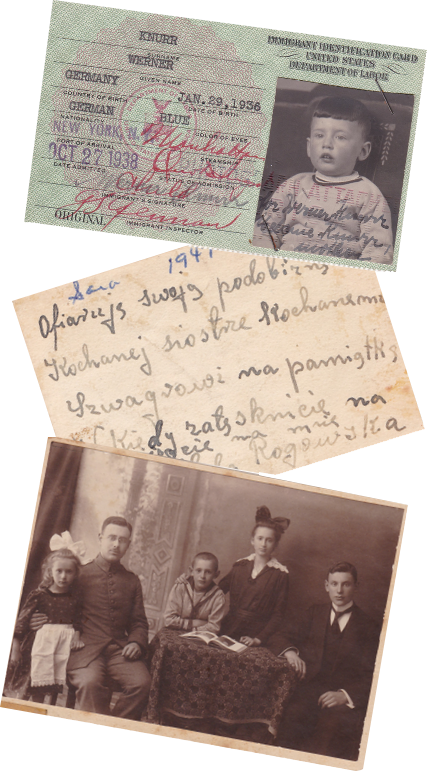 KNURR
SURNAME
WERNER
GIVEN NAME
GERMANY
COUNTRY OF BIRTH
JAN.29,1936
DATE OF BIRTH
GERMAN
NATIONALITY
BLUE
COLOR OF EYES
NEW YORK, N.
PORT OF ARRIVAL
STEAMSHIP
OCT 27 1938
DATE ADMITTED
STATUS ON ADMISSION
IMMIGRANT'S SIGNATURE
ORIGINAL
IMMIGRANT INSPECTOR
IMMIGRANT IDENTIFICATION CARD
UNITED STATES
DEPARTMENT OF LABOR
for Werner Knurr
Knurr
mother
1941
Ofiaruję swoją podobiznę
Kochanej siostrze Kochanemu
Szwagrowi na pamiątkę
Kiedy zatęsknicie na
mnie
Rogowska